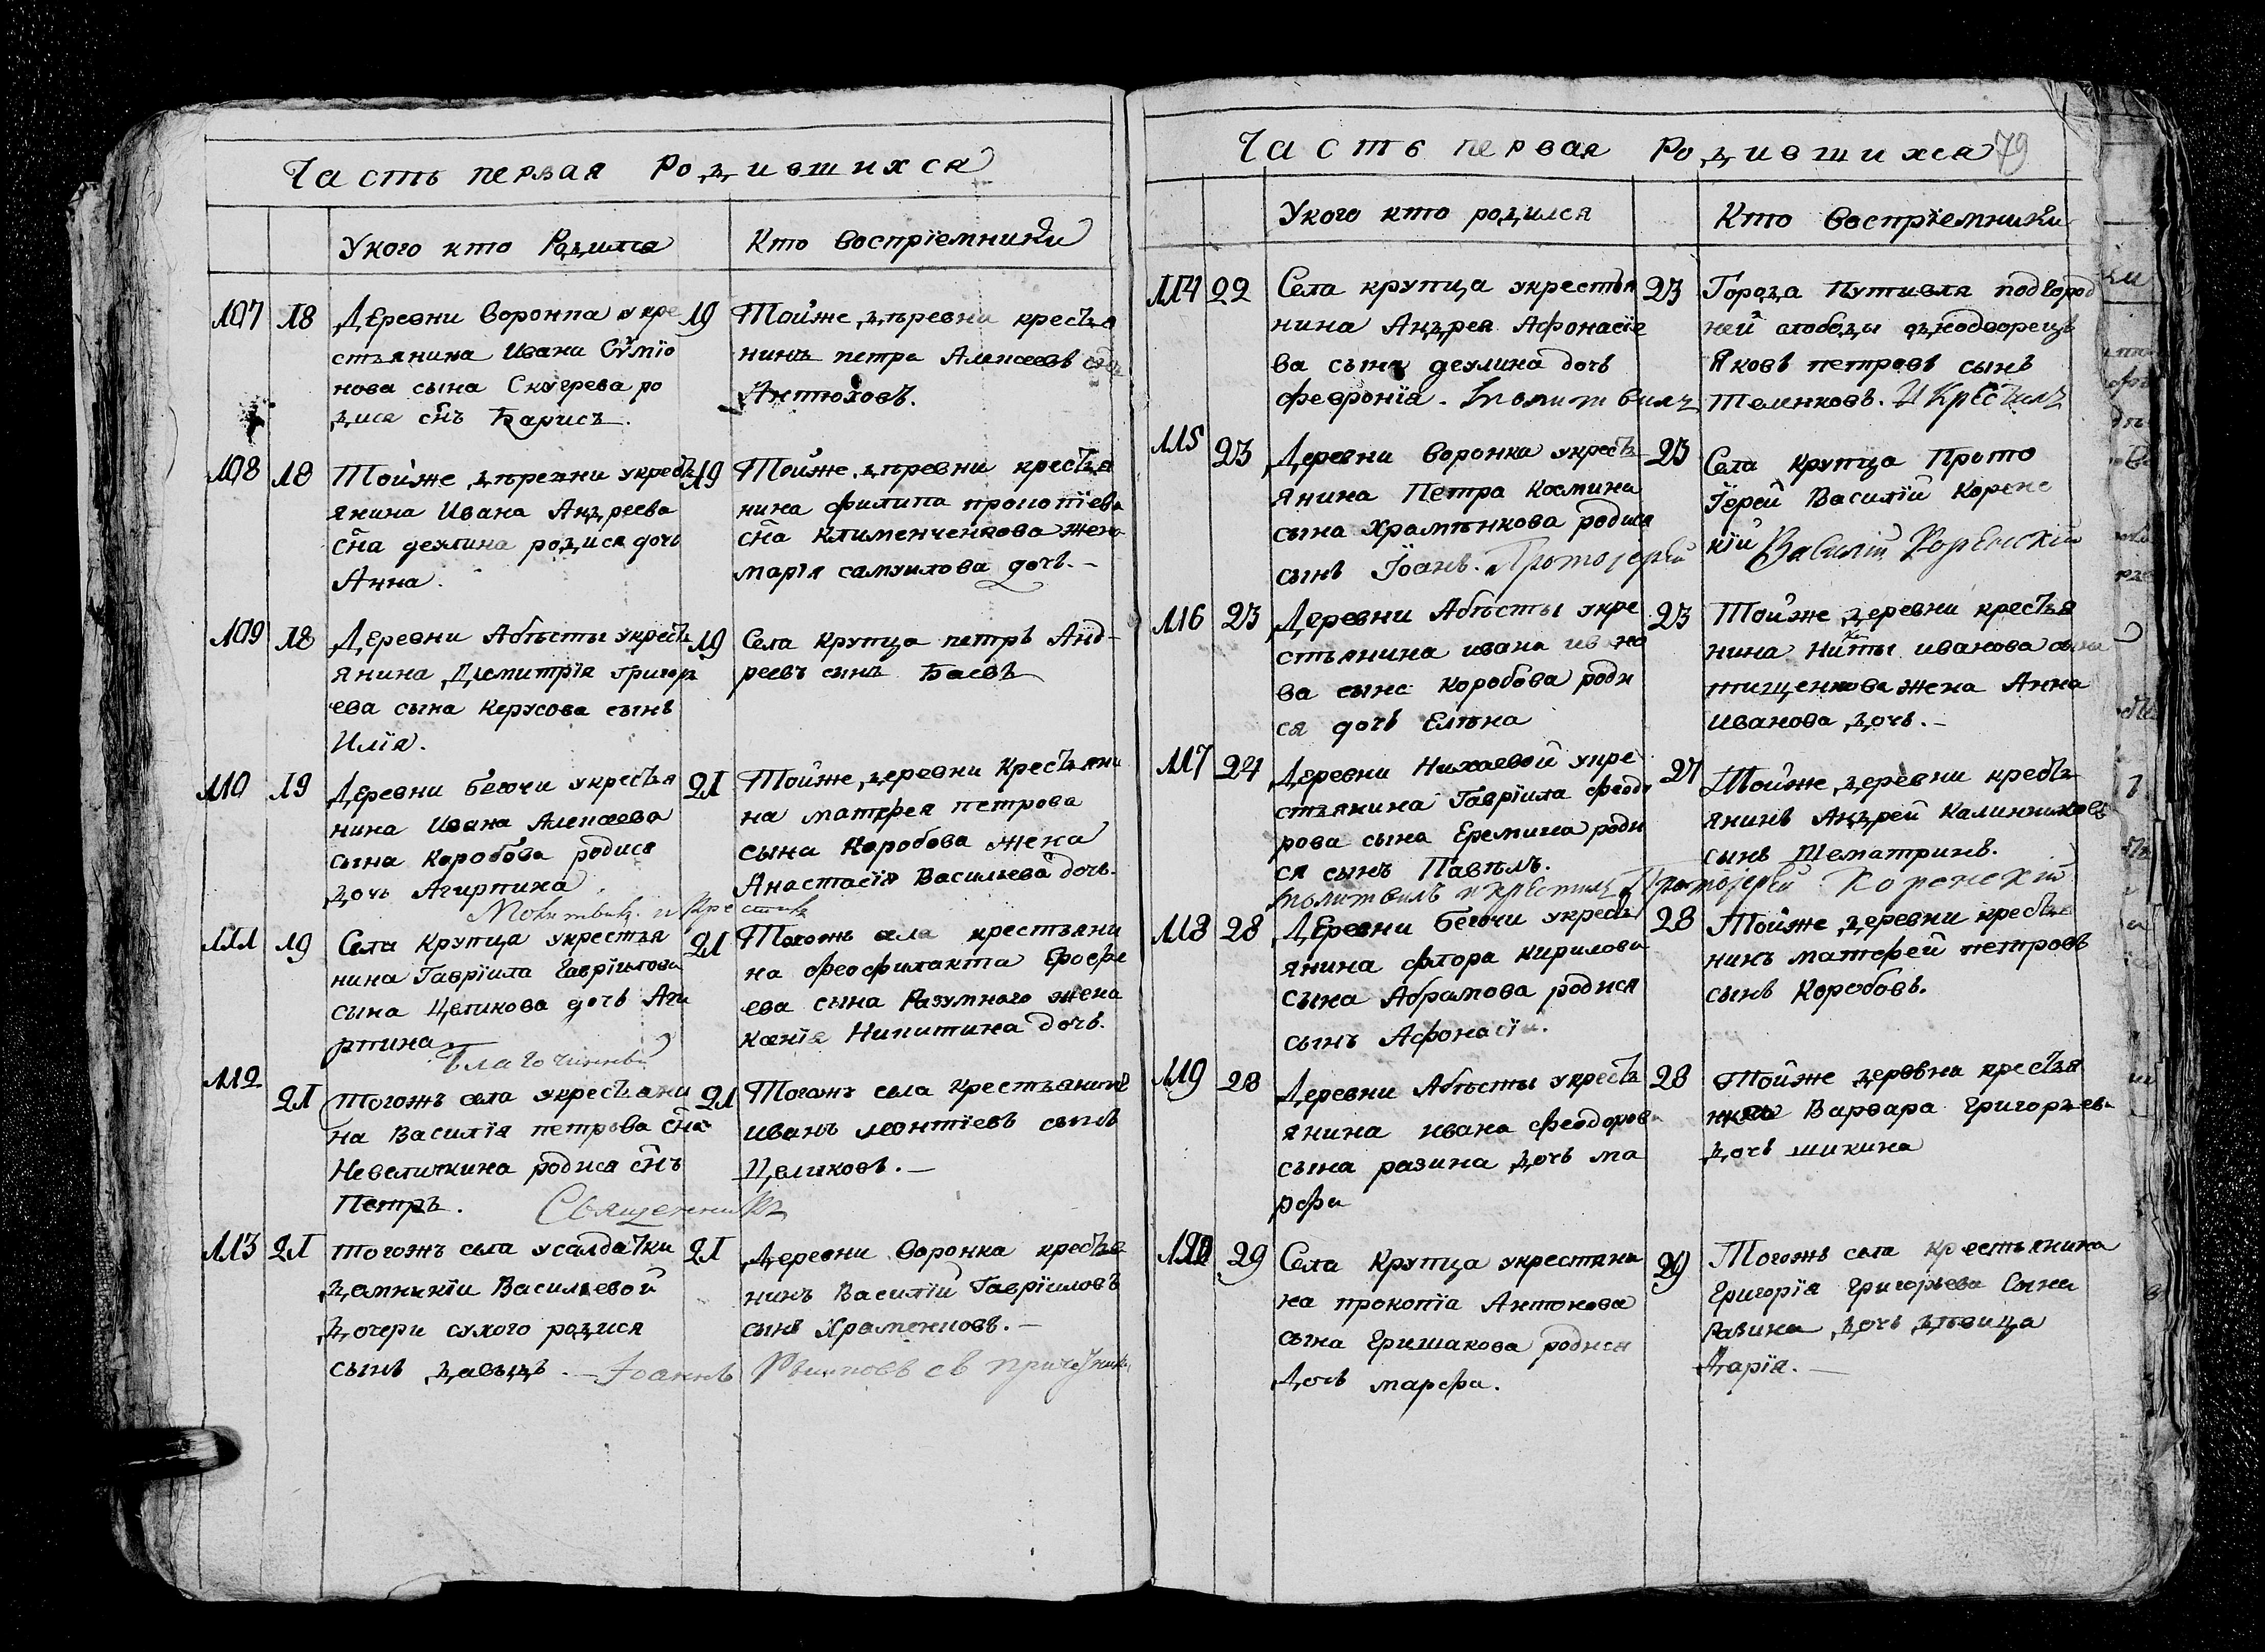 Часть первая Родившихся
Укого кто Родился
Кто воспріемники
107 18
Деревни Воронка укре
стьянина Ивана Сѵмїо
нова сына Скугрева ро
дися сн҃ъ Барисъ.
19
Тойже дѣревни крестья
нинъ петра Алексеевъ
Антюховъ.
108 18
Тойже дѣревни укресть
янина Ивана Андреева
сн҃а деулина родися дочь
Анна.
19
Тойже дѣревни крестья
нина филипа прокопїева
сн҃а Клименченкова жена
марїя самуилова дочь.-
109 18
Деревни Абѣсты укресть
янина Димитрїя григорь
ева сына Керусова сынъ
Илїя.
19
Села Крупца петръ Анд-
реевъ сынъ Баевъ
110 19
Деревни бегочи укрестья
нина Ивана Алексеева
сына Коробова родися
дочь Агирпина
21
Тойже деревни Крестьяни
на матфея петрова
сына Коробова жена
Анастасїя Васильева дочь.
Молитвилъ и крестилъ
111 19
Села Крупца укрестья
нина Гаврїила Гаврїилова
сына Целикова дочь Аги
рпина
21
Тогожъ села крестьяни
на феофилакта Ерофе
ева сына Разумного жена
ксенїя Никитина дочь.
Благочинный
112 21
тогожъ села укрестьяни
на Василїя петрова сн҃а
Невеличкина родися сн҃ъ
Петръ.
21
Тогожъ села крестьянинъ
иванъ леонтїевъ сынъ
Целиковъ.-
Священникъ
113 21
тогожъ села усалдатки
домникїи Васильевой
дочери сухого родися
сынъ давыдъ.-
21
Деревни Воронка крестья
нинъ Василїй Гаврїиловъ
сынъ Храменковъ.-
Іоаннъ съ причетники
Часть первая Родившихся 79
Укого кто родился
Кто воспріемники
114 22
Села крупца укрестья
нина Андрея Афонасїе
ва сына деулина дочь
феvронїя.
23
Города Путивля подгород
ней слободы однодворецъ
Яковъ петровъ сынъ
Теленковъ.
Молитвилъ И Крестилъ
115 23
Деревни Воронка укресть
янина Петра Космина
сына Храмѣнкова родися
сынъ Їоанъ.
23
Села крупца Прото
Їерей Василїй Корене
кїй
Протоіерей Василій Коренскій
116 23
Деревни Абѣсты укре
стьянина ивана ивано
ва сына коробова роди
ся дочь Елѣна
23
Тойже деревни крестья
нина Никиты иванова сына
тищенкова жена Анна
Иванова дочь.-
117 24
Деревни Нихаевой укре
стьянина Гаврїила феодо
рова сына Еремина роди
ся сынъ Павѣлъ.
27
Тойже деревни кресть
янинъ Андрей Калинниковъ
сынъ Шематринъ.
молитвилъ и крестилъ Протоіерей Коренскій
118 28
Деревни Бегочи укресть
янина флора кирилова
сына Абрамова родися
сынъ Афонасїй.
28
Тойже деревни крестья
нинъ матфей петровъ
сынъ Коробовъ.
119 28
Деревни Абѣсты укресть
янина ивана феодорова
сына разина дочь ма
рфа
28
Тойже деревни крестья
нка Варвара григорьева
дочь шикина
120 29
Села Крупца укрестяни
на прокопїа Антонова
сына Гришакова родися
Дочь марфа.
29
Тогожъ села крестьянина
григорїя григорьева Сына
Разина дочь дѣвица
Дарїя.-